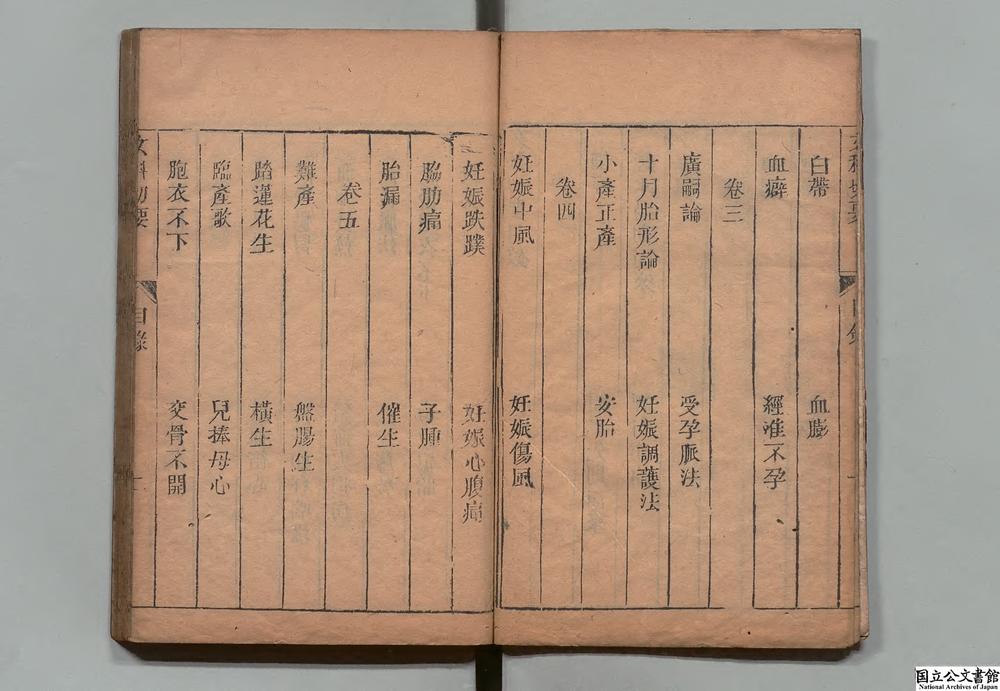 白帶　血膨
血癖　經准不孕
卷三
廣嗣論　受孕脈法
十月胎形論　妊娠調護法
小產正產　安胎
卷四
妊娠中風　妊娠傷風
妊娠跌蹼　妊娠心腹痛
脇肋痛　子腫
胎漏　催生
卷五
難產　盤腸生
踏蓮花生　橫生
臨產歌　兒捧母心
胞衣不下　交骨不開
女科切要　目錄　二
国立公文書館
National Archives of Japan